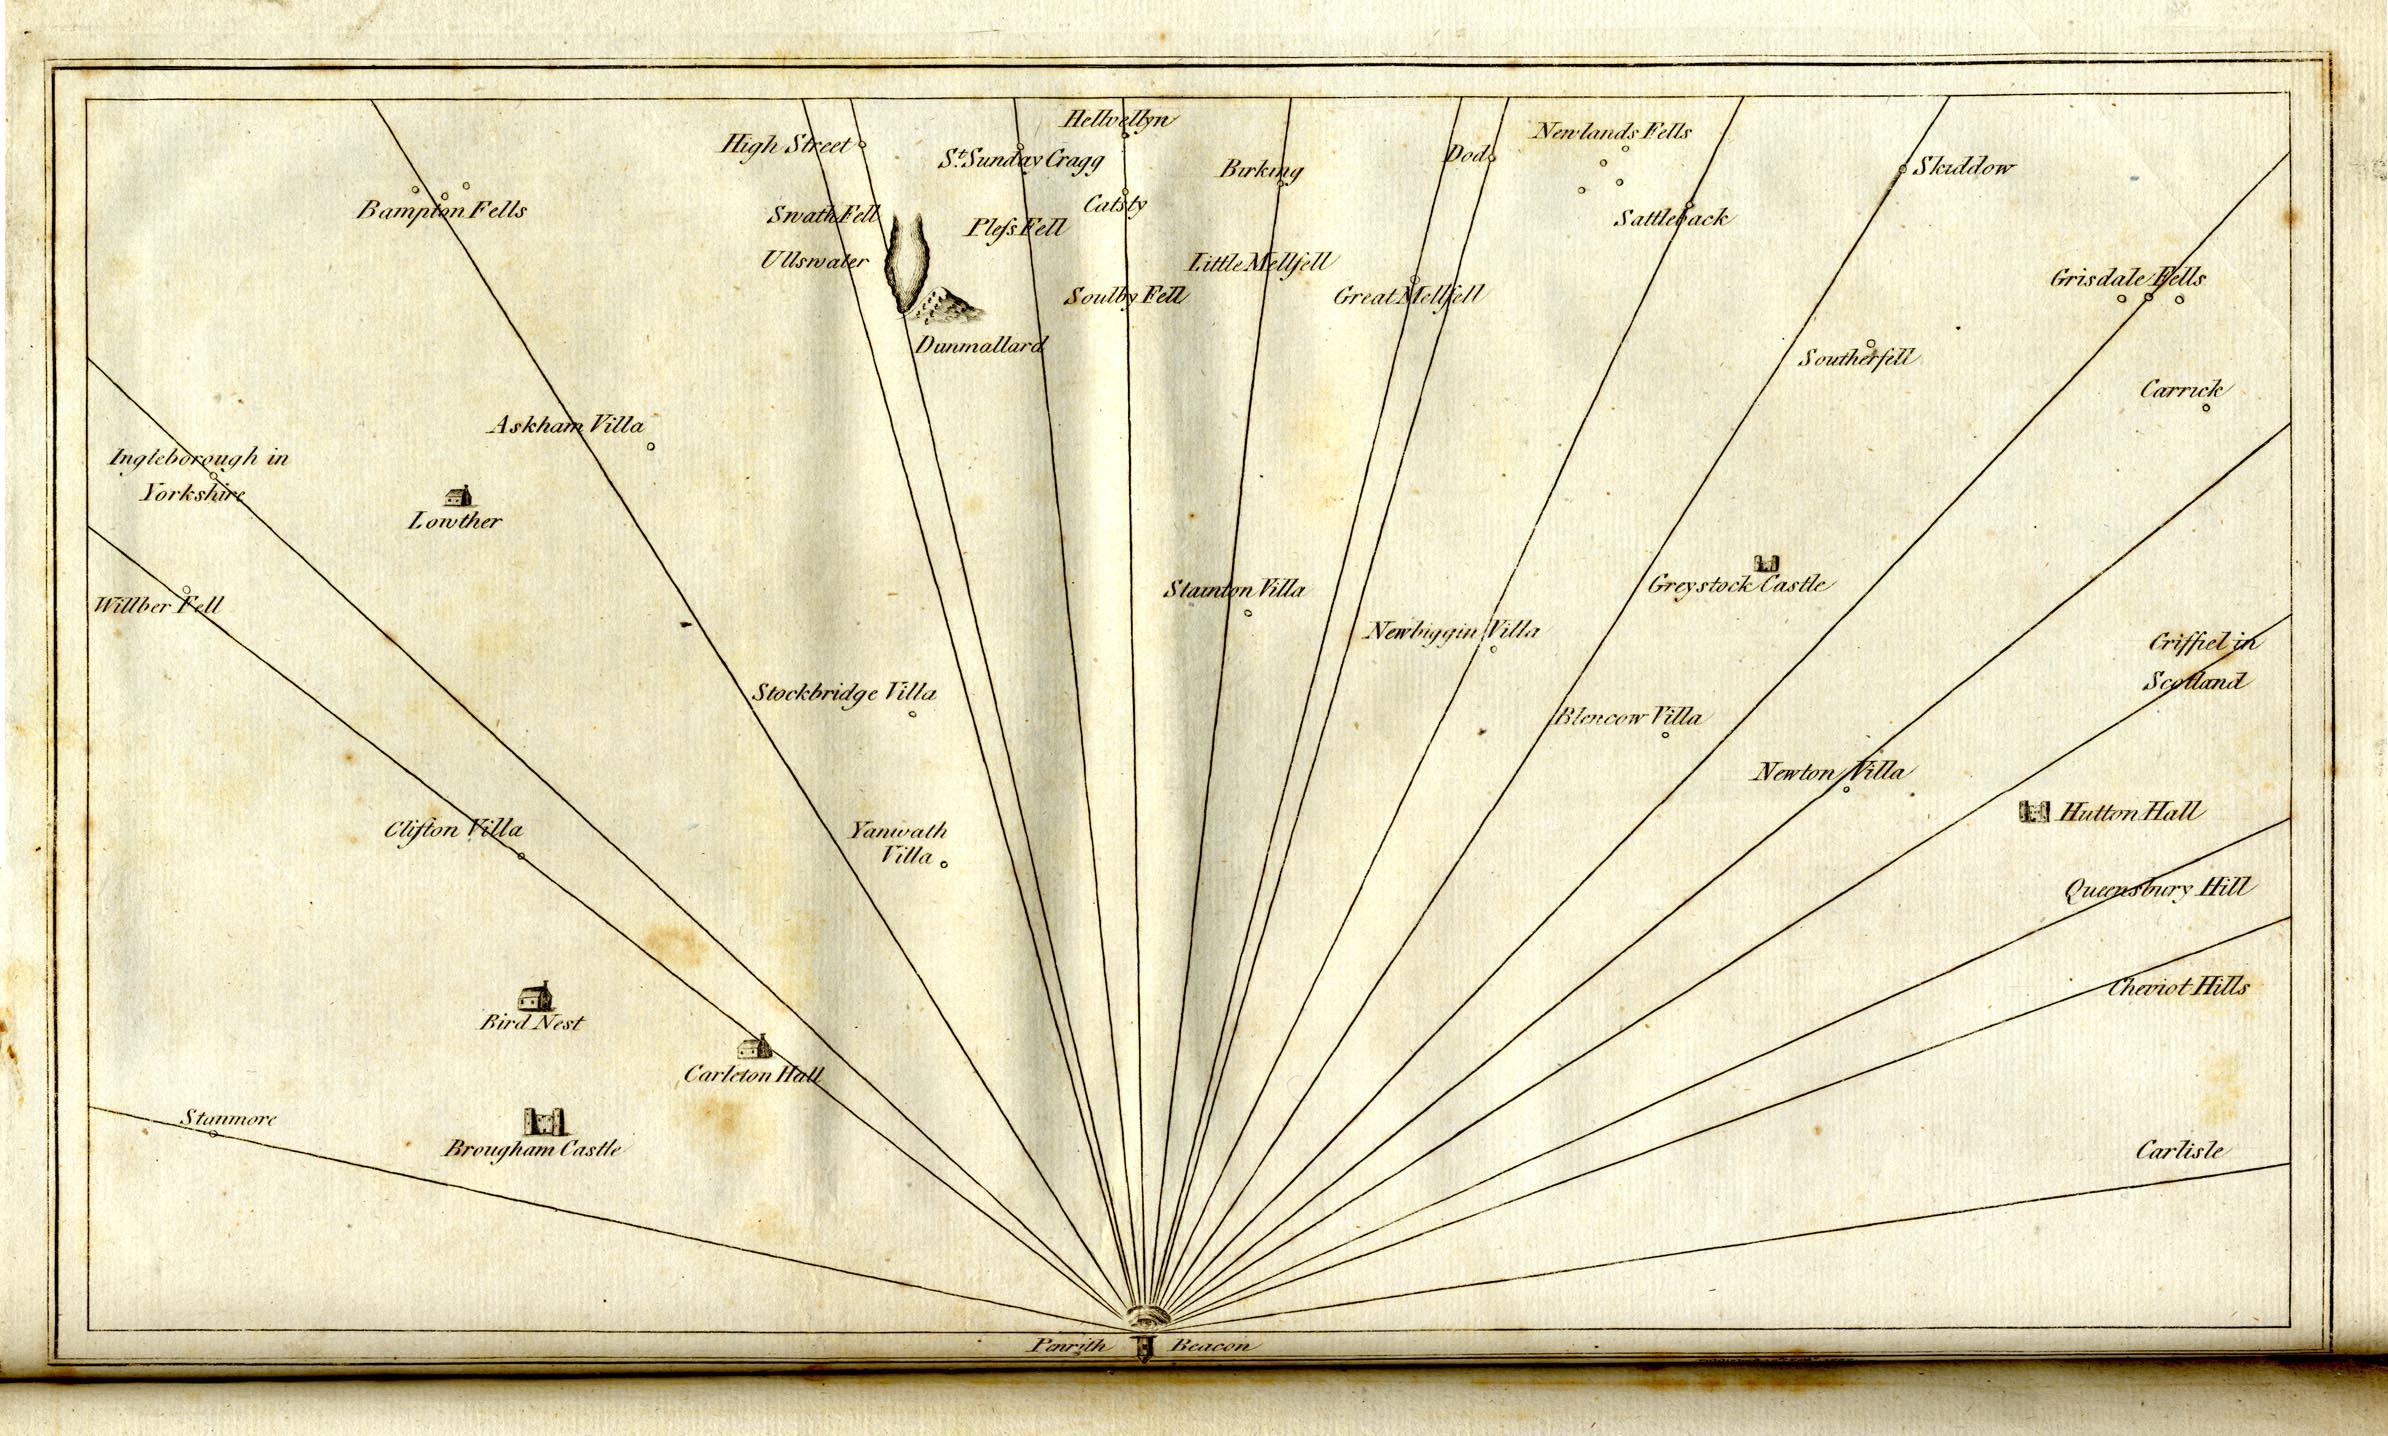 Hellvellyn
Newlands Fells
High Street
St. Sunday Cragg
Dod
Birking
Skiddow
Bampton Fells
Catsty
Swath Fell
Sattleback
Pless Fell
Ullswater
Little Mellfell
Grisdale Fells
Soulby Fell
Great Mellfell
Dunmallard
Southerfell
Carrick
Askham Villa
Ingleborough in
Yorkshire
Lowther
Greystock Castle
Stainton Villa
Willber Fell
Newbiggin Villa
Criffiel in
Scotland
Stockbridge Villa
Blencow Villa
Newton Villa
Hutton Hall
Clifton Villa
Yanwath
Villa
Queensbury Hill
Cheviot Hills
Bird Nest
Carleton Hall
Stanmore
Brougham Castle
Carlisle
Penrith Beacon